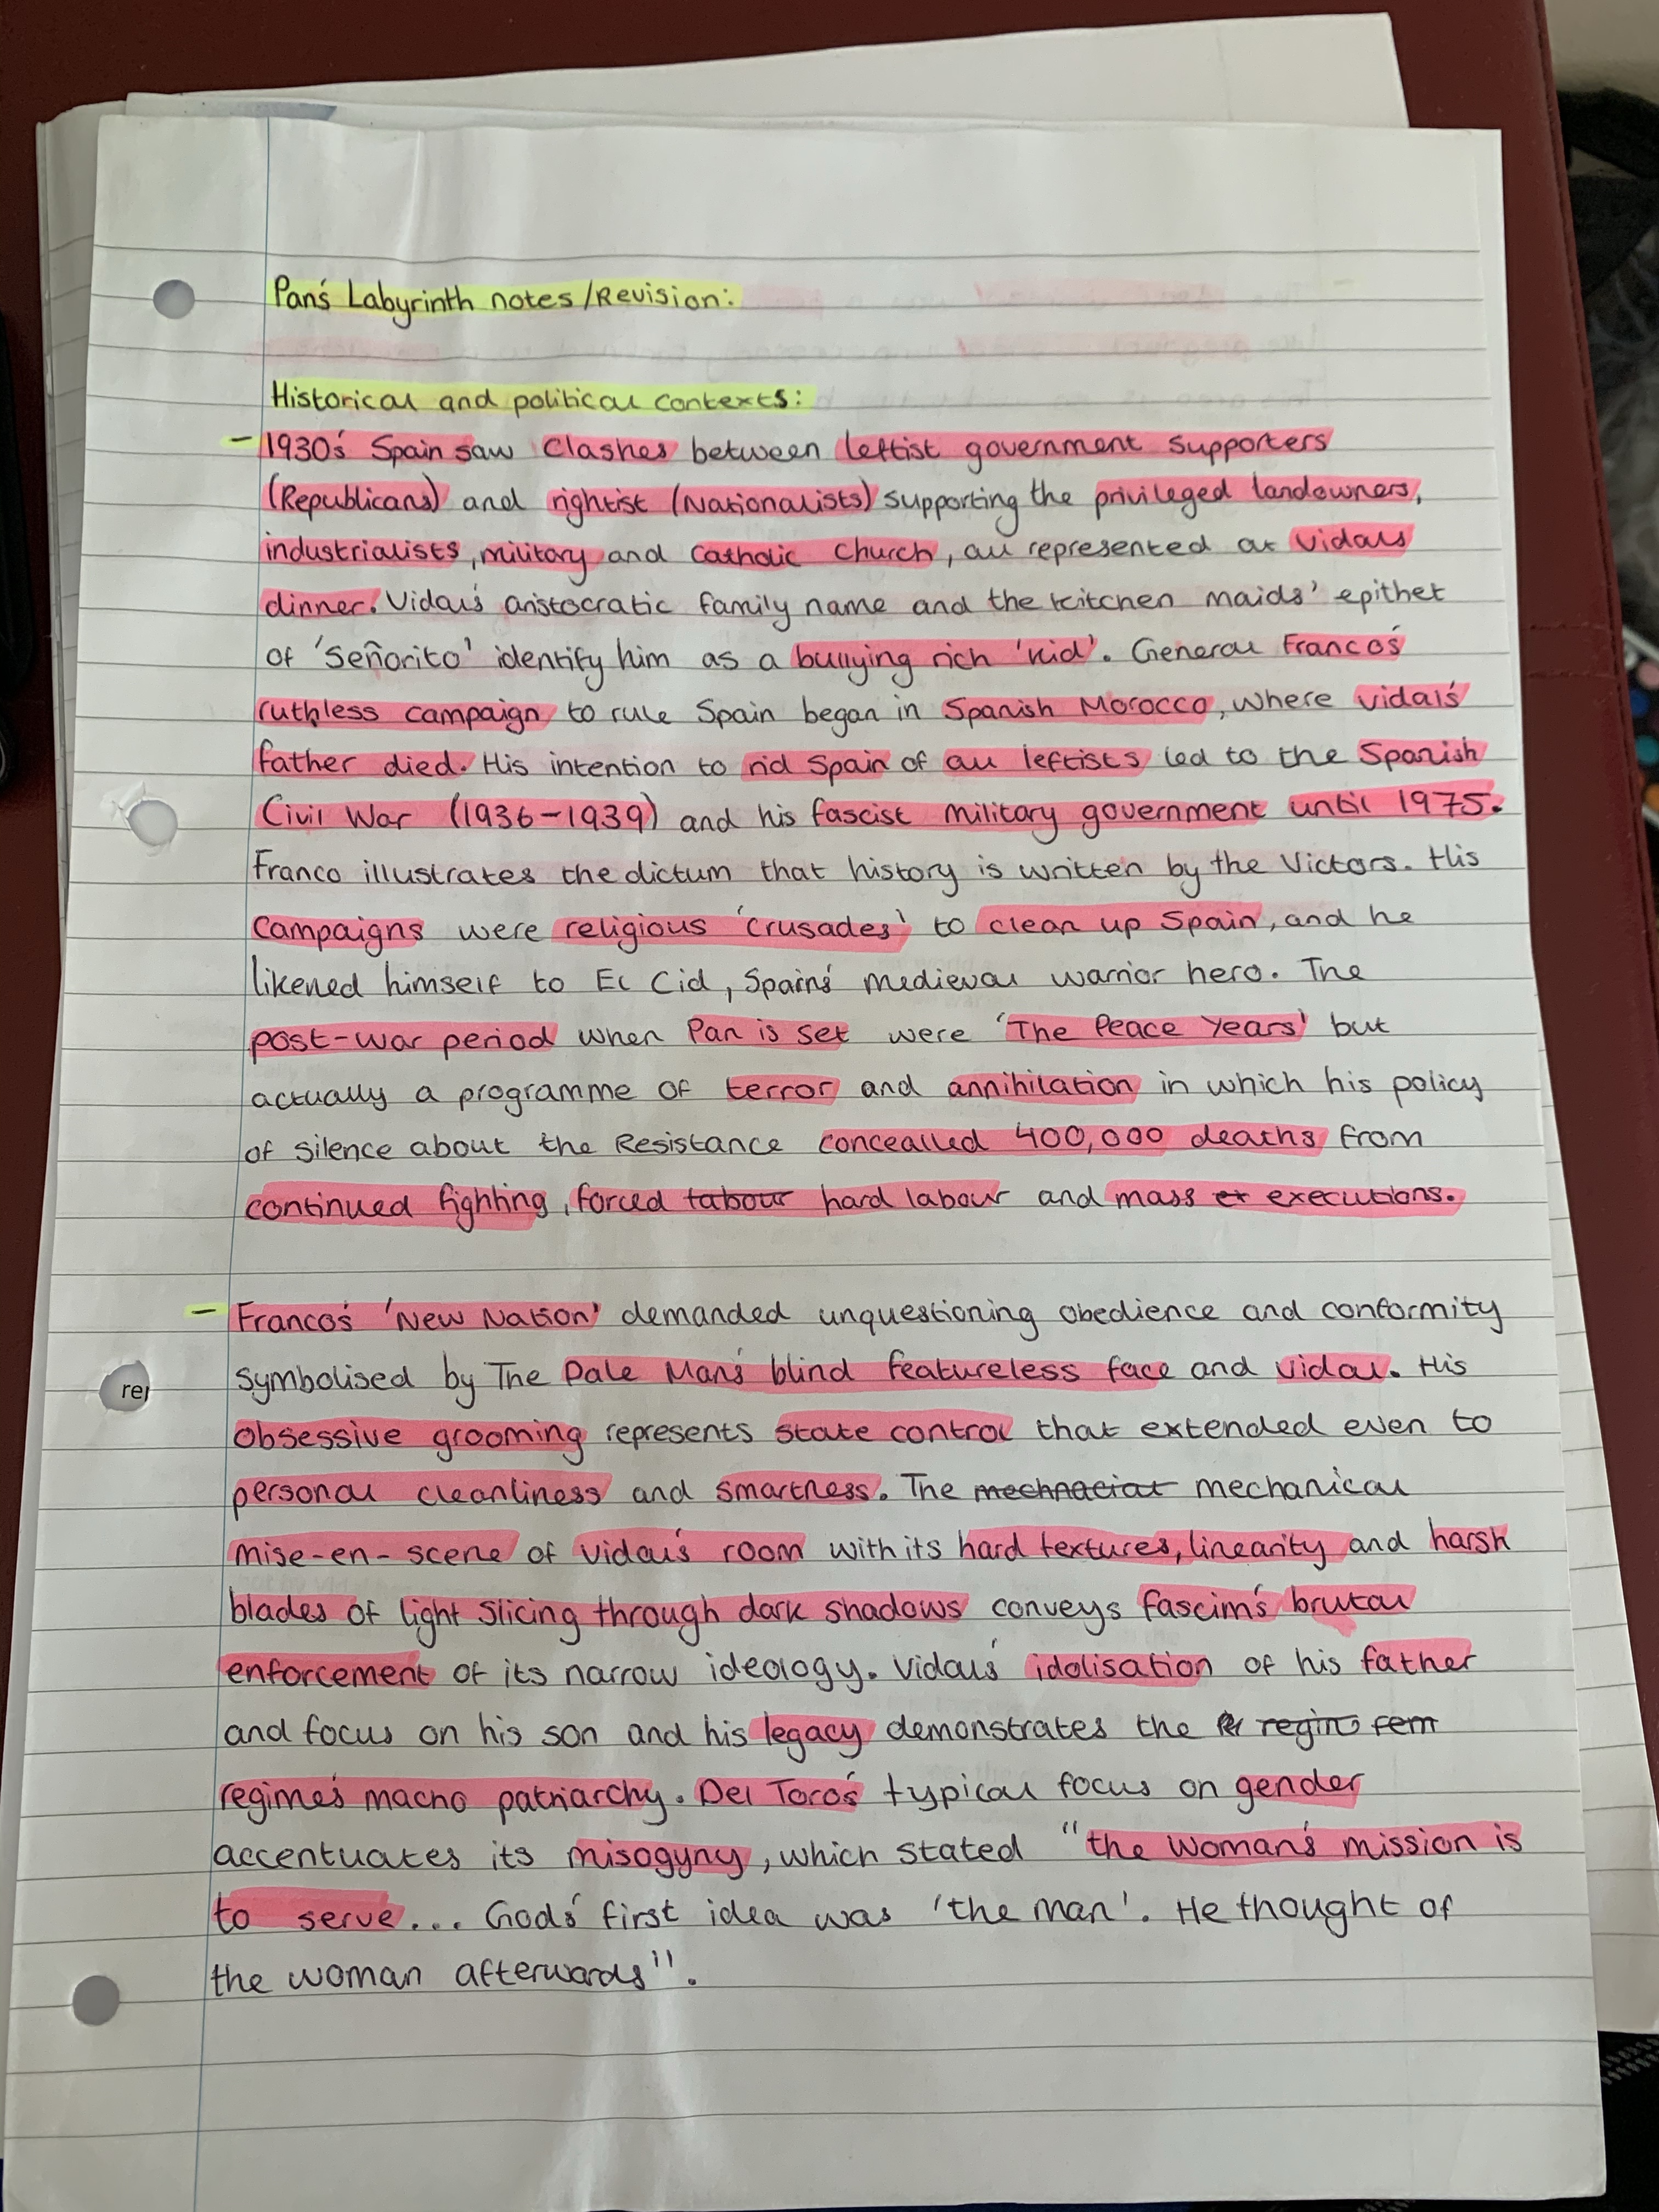 Pan's Labyrinth notes/Revision:
Historical and political contexts:
- 1930's Spain saw clashes between leftist government supporters
(Republicans) and rightist (Nationalists) supporting the privileged landowners,
industrialists, military and Catholic Church, all represented at Vidals
dinner. Vidal's aristocratic family name and the kitchen maids' epithet
of 'Señorito' identify him as a bullying rich 'kid'. General Franco's
ruthless campaign to rule Spain began in Spanish Morocco, where Vidal's
father died. His intention to rid Spain of all leftists led to the Spanish
Civil War (1936-1939) and his fascist military government until 1975.
Franco illustrates the dictum that history is written by the Victors. His
campaigns were religious 'crusades' to clean up Spain, and he
likened himself to El Cid, Spain's medieval warrior hero. The
post-war period when Pan is set were 'The Peace Years' but
actually a programme of terror and annihilation in which his policy
of silence about the Resistance concealled 400,000 deaths from
continued fighting, forced labour hard labour and mass ex executions.
- Franco's 'New Nation' demanded unquestioning obedience and conformity
symbolised by The Pale Man's blind featureless face and Vidal. His
rep
obsessive grooming represents state control that extended even to
personal cleanliness and smartness. The mechnacial mechanical
mise-en-scene of Vidal's room with its hard textures, linearity and harsh
blades of light slicing through dark shadows conveys fascim's brutal
enforcement of its narrow ideology. Vidal's idolisation of his father
and focus on his son and his legacy demonstrates the
regime's macho patriarchy. Del Toro's typical focus on gender
accentuates its misogyny, which stated "the woman's mission is
to serve... God's first idea was 'the man'. He thought of
the woman afterwards".